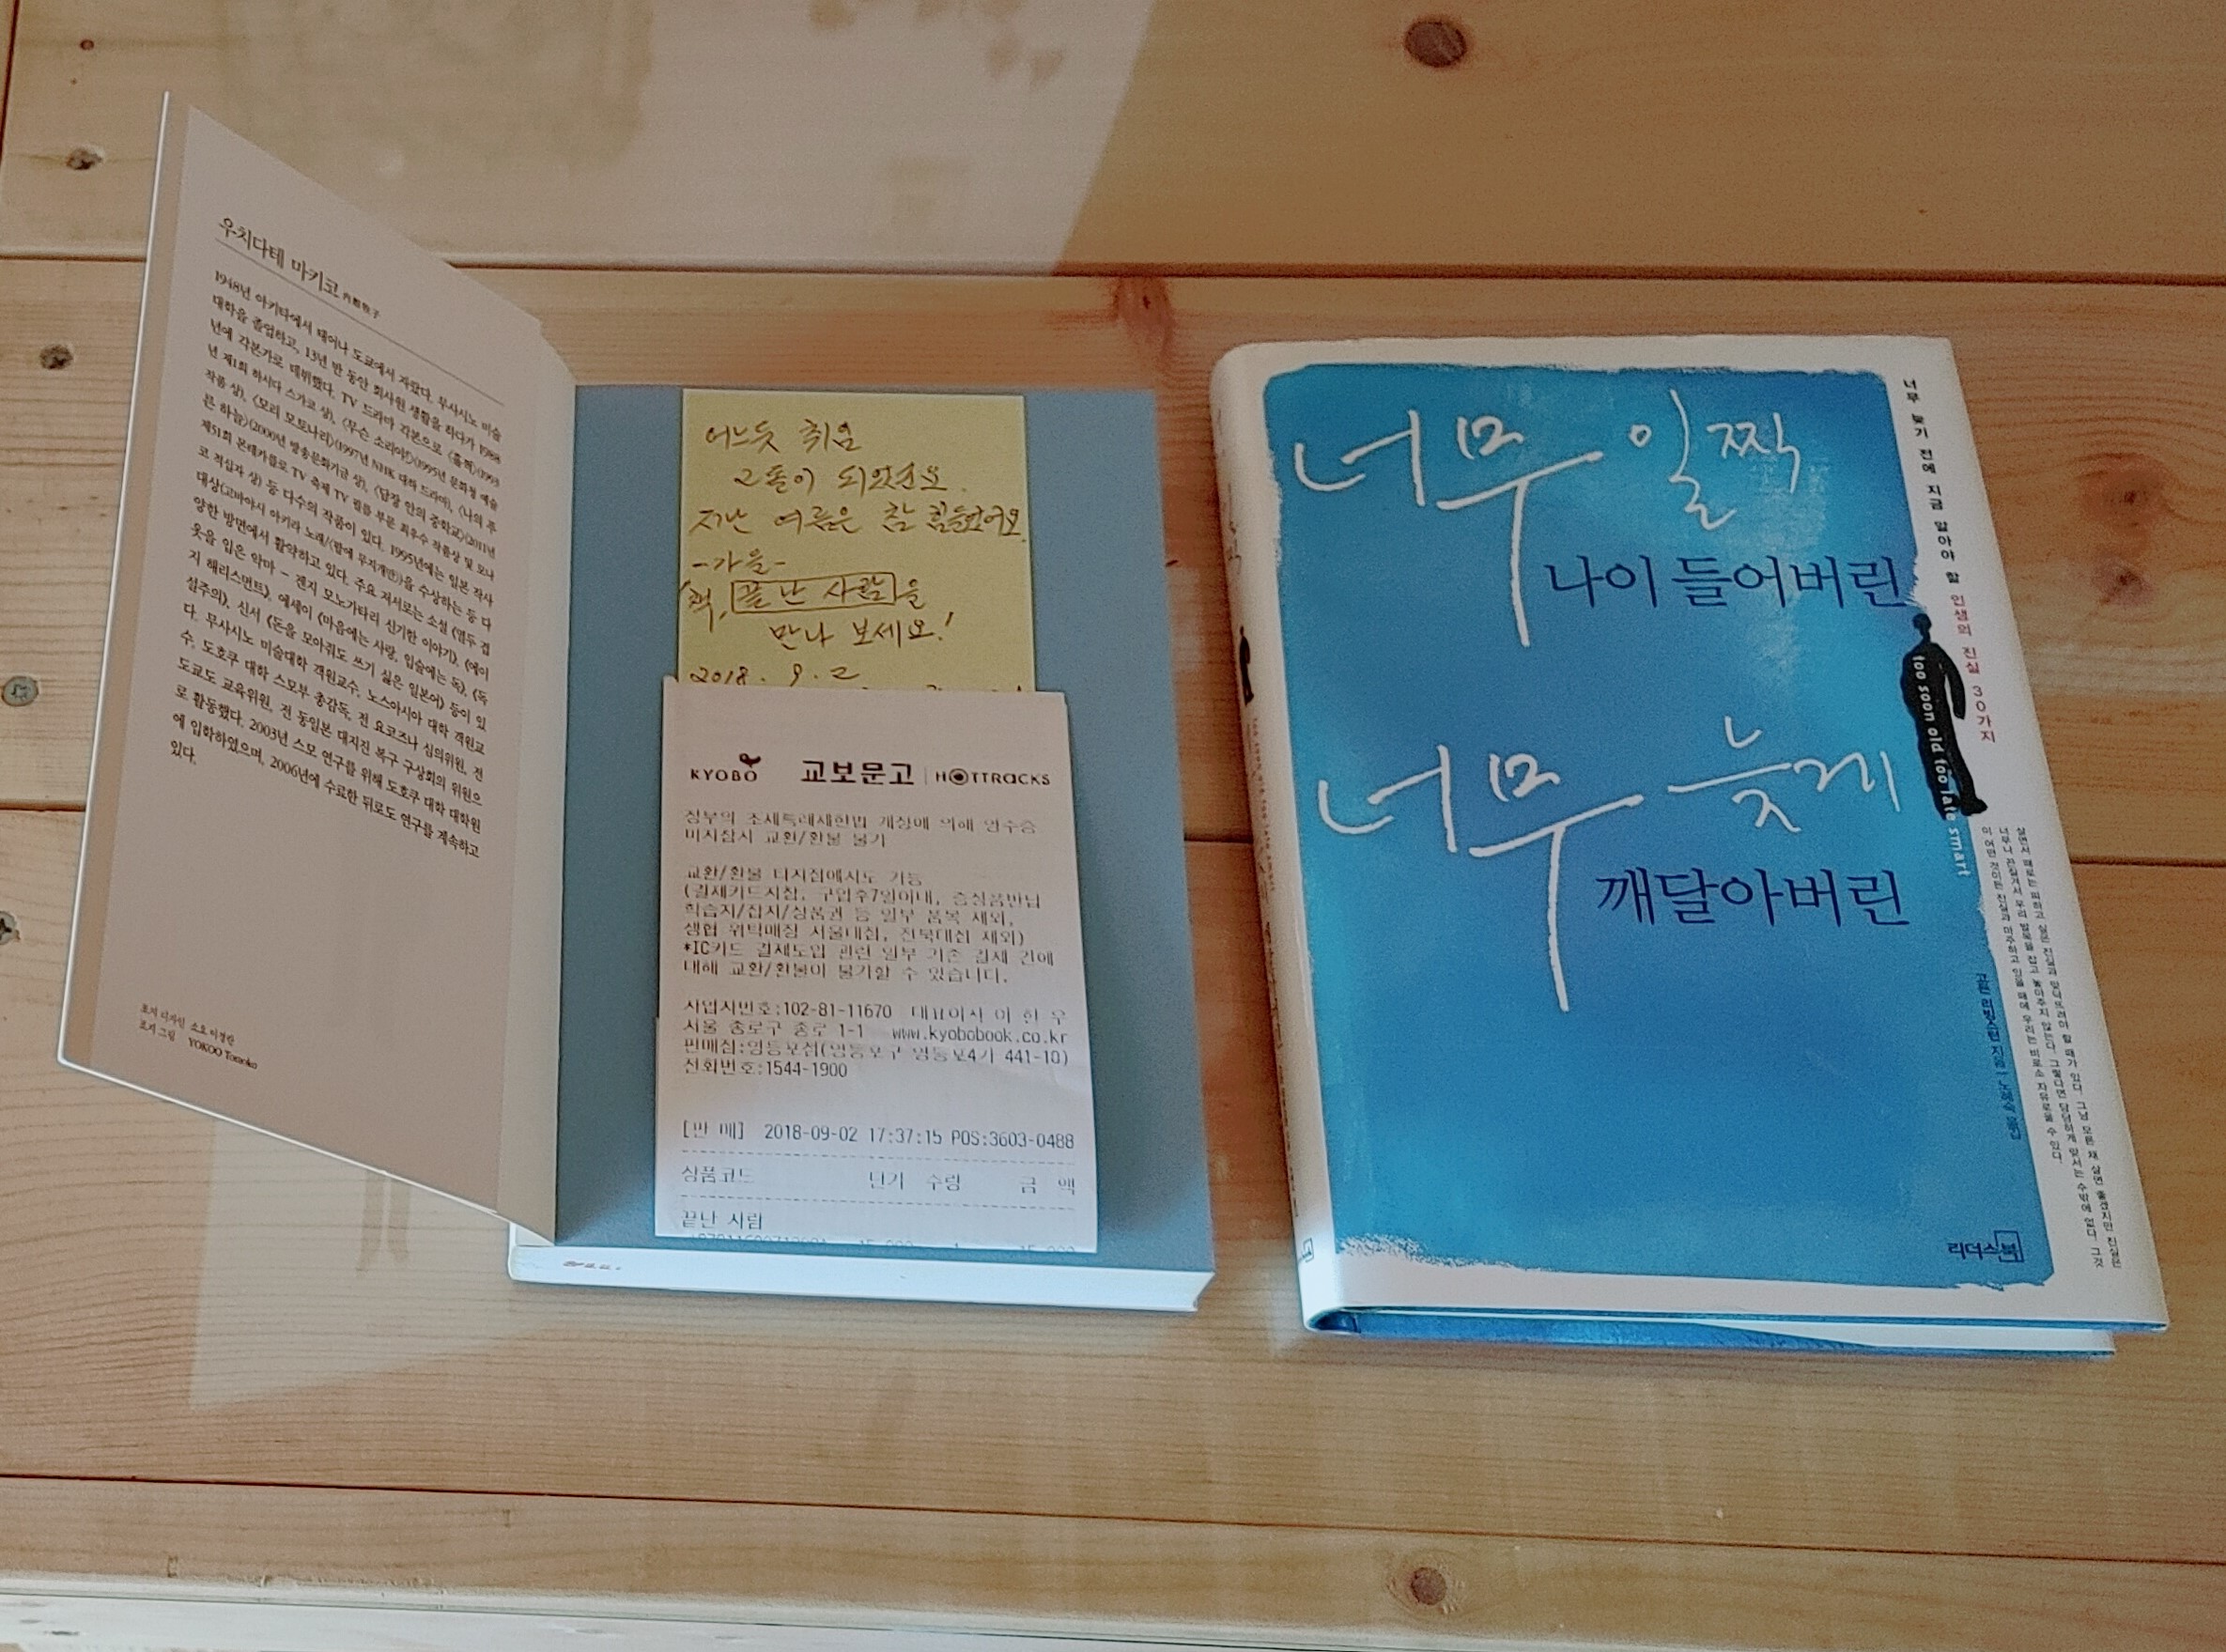 우치다테 마키코 內館牧子
1948년 아키타에서 태어나 도쿄에서 자랐다. 무사시노 미술
대학을 졸업하고, 13년 반 동안 회사원 생활을 하다가 1988
년에 각본가로 데뷔했다. TV 드라마 각본으로 〈출책〉(1993
년 제1회 하시다 스가코 상), 〈무슨 소리야!〉(1995년 문화청 예술
작품 상), 〈모리 모토나리〉(1997년 NHK 대하 드라마), 〈나의 푸
른 하늘〉(2000년 방송문화기금 상), 〈답장 안의 중학교〉(2011년
제51회 몬테카를로 TV 축제 TV 필름 부문 최우수 작품상 및 모나
코 적십자 상) 등 다수의 작품이 있다. 1995년에는 일본 작사
대상(고바야시 아키라 노래/〈밤에 무지개만〉)을 수상하는 등 다
양한 방면에서 활약하고 있다. 주요 저서로는 소설 《열두 겹
옷을 입은 악마 - 겐지 모노가타리 신기한 이야기》, 《에이
지 해리스먼트》, 에세이 《마음에는 사랑, 입술에는 독》, 《독
설주의》, 신서 《돈을 모아줘도 쓰기 싫은 일본어》 등이 있
다. 무사시노 미술대학 객원교수, 노스아시아 대학 객원교
수, 도호쿠 대학 스모부 총감독, 전 요코즈나 심의위원, 전
도쿄도 교육위원, 전 동일본 대지진 복구 구상회의 위원으
로 활동했다. 2003년 스모 연구를 위해 도호쿠 대학 대학원
에 입학하였으며, 2006년에 수료한 뒤로도 연구를 계속하고
있다.
표지 디자인 소요 이경란
표지 그림 YOKOO Tomoko
어느듯 취임
2돌이 되었군요.
지난 여름은 참 힘들었어요
-가을-
책, 끝난 사람을
만나 보세요!
2018. 9. 2
KYOBO 교보문고 HOTTRACKS
정부의 조세특례제한법 개정에 의해 영수증
미지참시 교환/환불 불가
교환/환불 타지점에서도 가능
(결제카드지참, 구입후7일이내, 증정품반납
학습지/잡지/상품권 등 일부 품목 제외,
생협 위탁매장 서울대점, 전북대점 제외)
*IC카드 결제도입 관련 일부 기존 결제 건에
대해 교환/환불이 불가할 수 있습니다.
사업자번호:102-81-11670 대표이사 이 한 우
서울 종로구 종로 1-1 www.kyobobook.co.kr
판매점:영등포점(영등포구 영등포4가 441-10)
전화번호:1544-1900
[판 매] 2018-09-02 17:37:15 POS:3603-0488
상품코드 단가 수량 금 액
끝난 사람
너무 일찍
나이 들어버린
너무 늦게
깨달아버린
너무 늦기 전에 지금 알아야 할 인생의 진실 30가지
too soon old too late smart
고든 리빙스턴 지음 | 노혜숙 옮김
살면서 때로는 피하고 싶은 진실과 맞닥뜨려야 할 때가 있다. 그냥 모른 채 살면 좋겠지만 진실은
너무나 끈질기게 우리 발목을 잡고 놓아주지 않는다. 그렇다면 당당하게 맞서는 수밖에 없다. 그것
이 어떤 것이든 진실과 마주하고 있을 때에 우리는 비로소 자유로울 수 있다.
리더스북